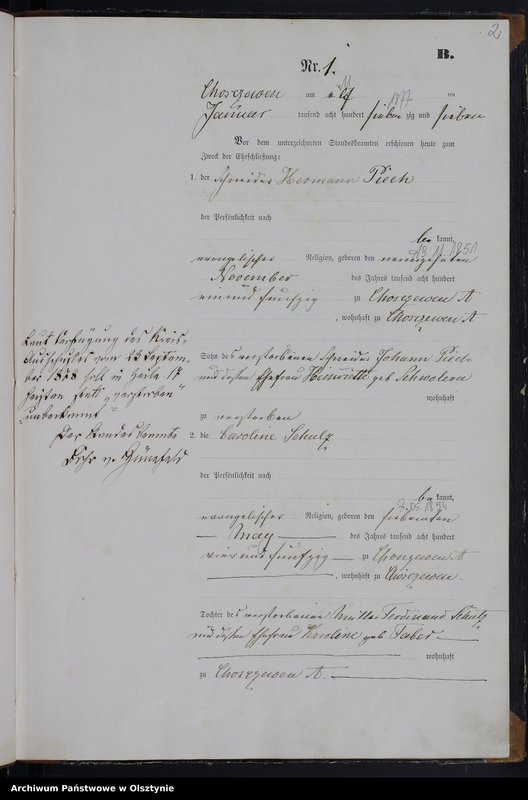 2
B.
Nr. 1.
Chosczewen am elf ten
11 1877
Januar tausend acht hundert sieben zig und sieben
Vor dem unterzeichneten Standesbeamten erschienen heute zum
Zweck der Eheschließung:
1. der Schneider Hermann Piech
der Persönlichkeit nach
be kannt,
19.11.1851
evangelischer Religion, geboren den neunzehnten
November des Jahres tausend acht hundert
ein und fünfzig zu Chosczewen A
, wohnhaft zu Chosczewen A
Sohn des verstorbenen Schneider Johann Piech
und dessen Ehefrau Heinriette geb
wohnhaft
zu verstorben
2. die Caroline Schulz
der Persönlichkeit nach
be kannt,
7.05.1854
evangelischer Religion, geboren den siebenten
May des Jahres tausend acht hundert
vier und fünfzig zu Chosczewen A
, wohnhaft zu Chosczewen
Tochter des verstorbenen Ferdinand Schulz
und dessen Ehefrau Karoline geb
wohnhaft
zu Chosczewen A.
Laut Verfügung des Kreis-
Ausschusses vom 23 Septem-
ber 1878 soll in Zeile 17
heißen statt "verstorben"
"unbekannt"
Der Standesbeamte
Archiwum Państwowe w Olsztynie